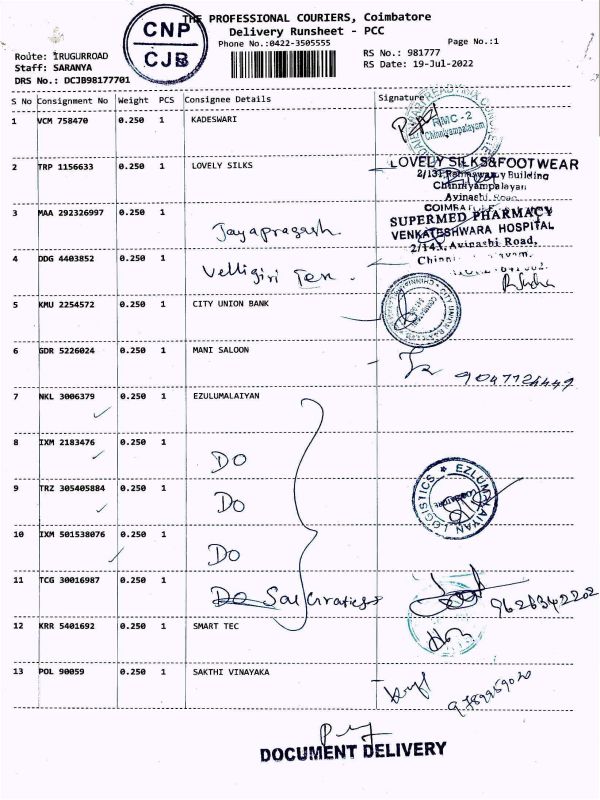 THE PROFESSIONAL COURIERS, Coimbatore
Delivery Runsheet - PCC
Phone No.:0422-3505555
Page No.:1
CNP
CJB
Route: IRUGURROAD
Staff: SARANYA
DRS No.: DCJB98177701
RS No.: 981777
RS Date: 19-Jul-2022
S No Consignment No Weight PCS Consignee Details Signature
1 VCM 758470 0.250 1 KADESWARI
RMC-2
Chinniyampalayam
2 TRP 1156633 0.250 1 LOVELY SILKS
LOVELY SILKS&FOOTWEAR
2/131, Building
Chinniyampalayam
Avinashi Road
3 MAA 292326997 0.250 1 Jayapragash
SUPERMED PHARMACY
VENKATESHWARA HOSPITAL
2/143, Avinashi Road,
4 DDG 4403852 0.250 1 Velligiri Tex
5 KMU 2254572 0.250 1 CITY UNION BANK
6 GDR 5226024 0.250 1 MANI SALOON
7 NKL 3006379 0.250 1 EZULUMALAIYAN
8 IXM 2183476 0.250 1 DO
9 TRZ 305405884 0.250 1 DO
EZLUMALAIYAN LOGISTICS
10 IXM 501538076 0.250 1 DO
11 TCG 30016987 0.250 1 Sai
9626342202
12 KRR 5401692 0.250 1 SMART TEC
13 POL 90059 0.250 1 SAKTHI VINAYAKA
DOCUMENT DELIVERY